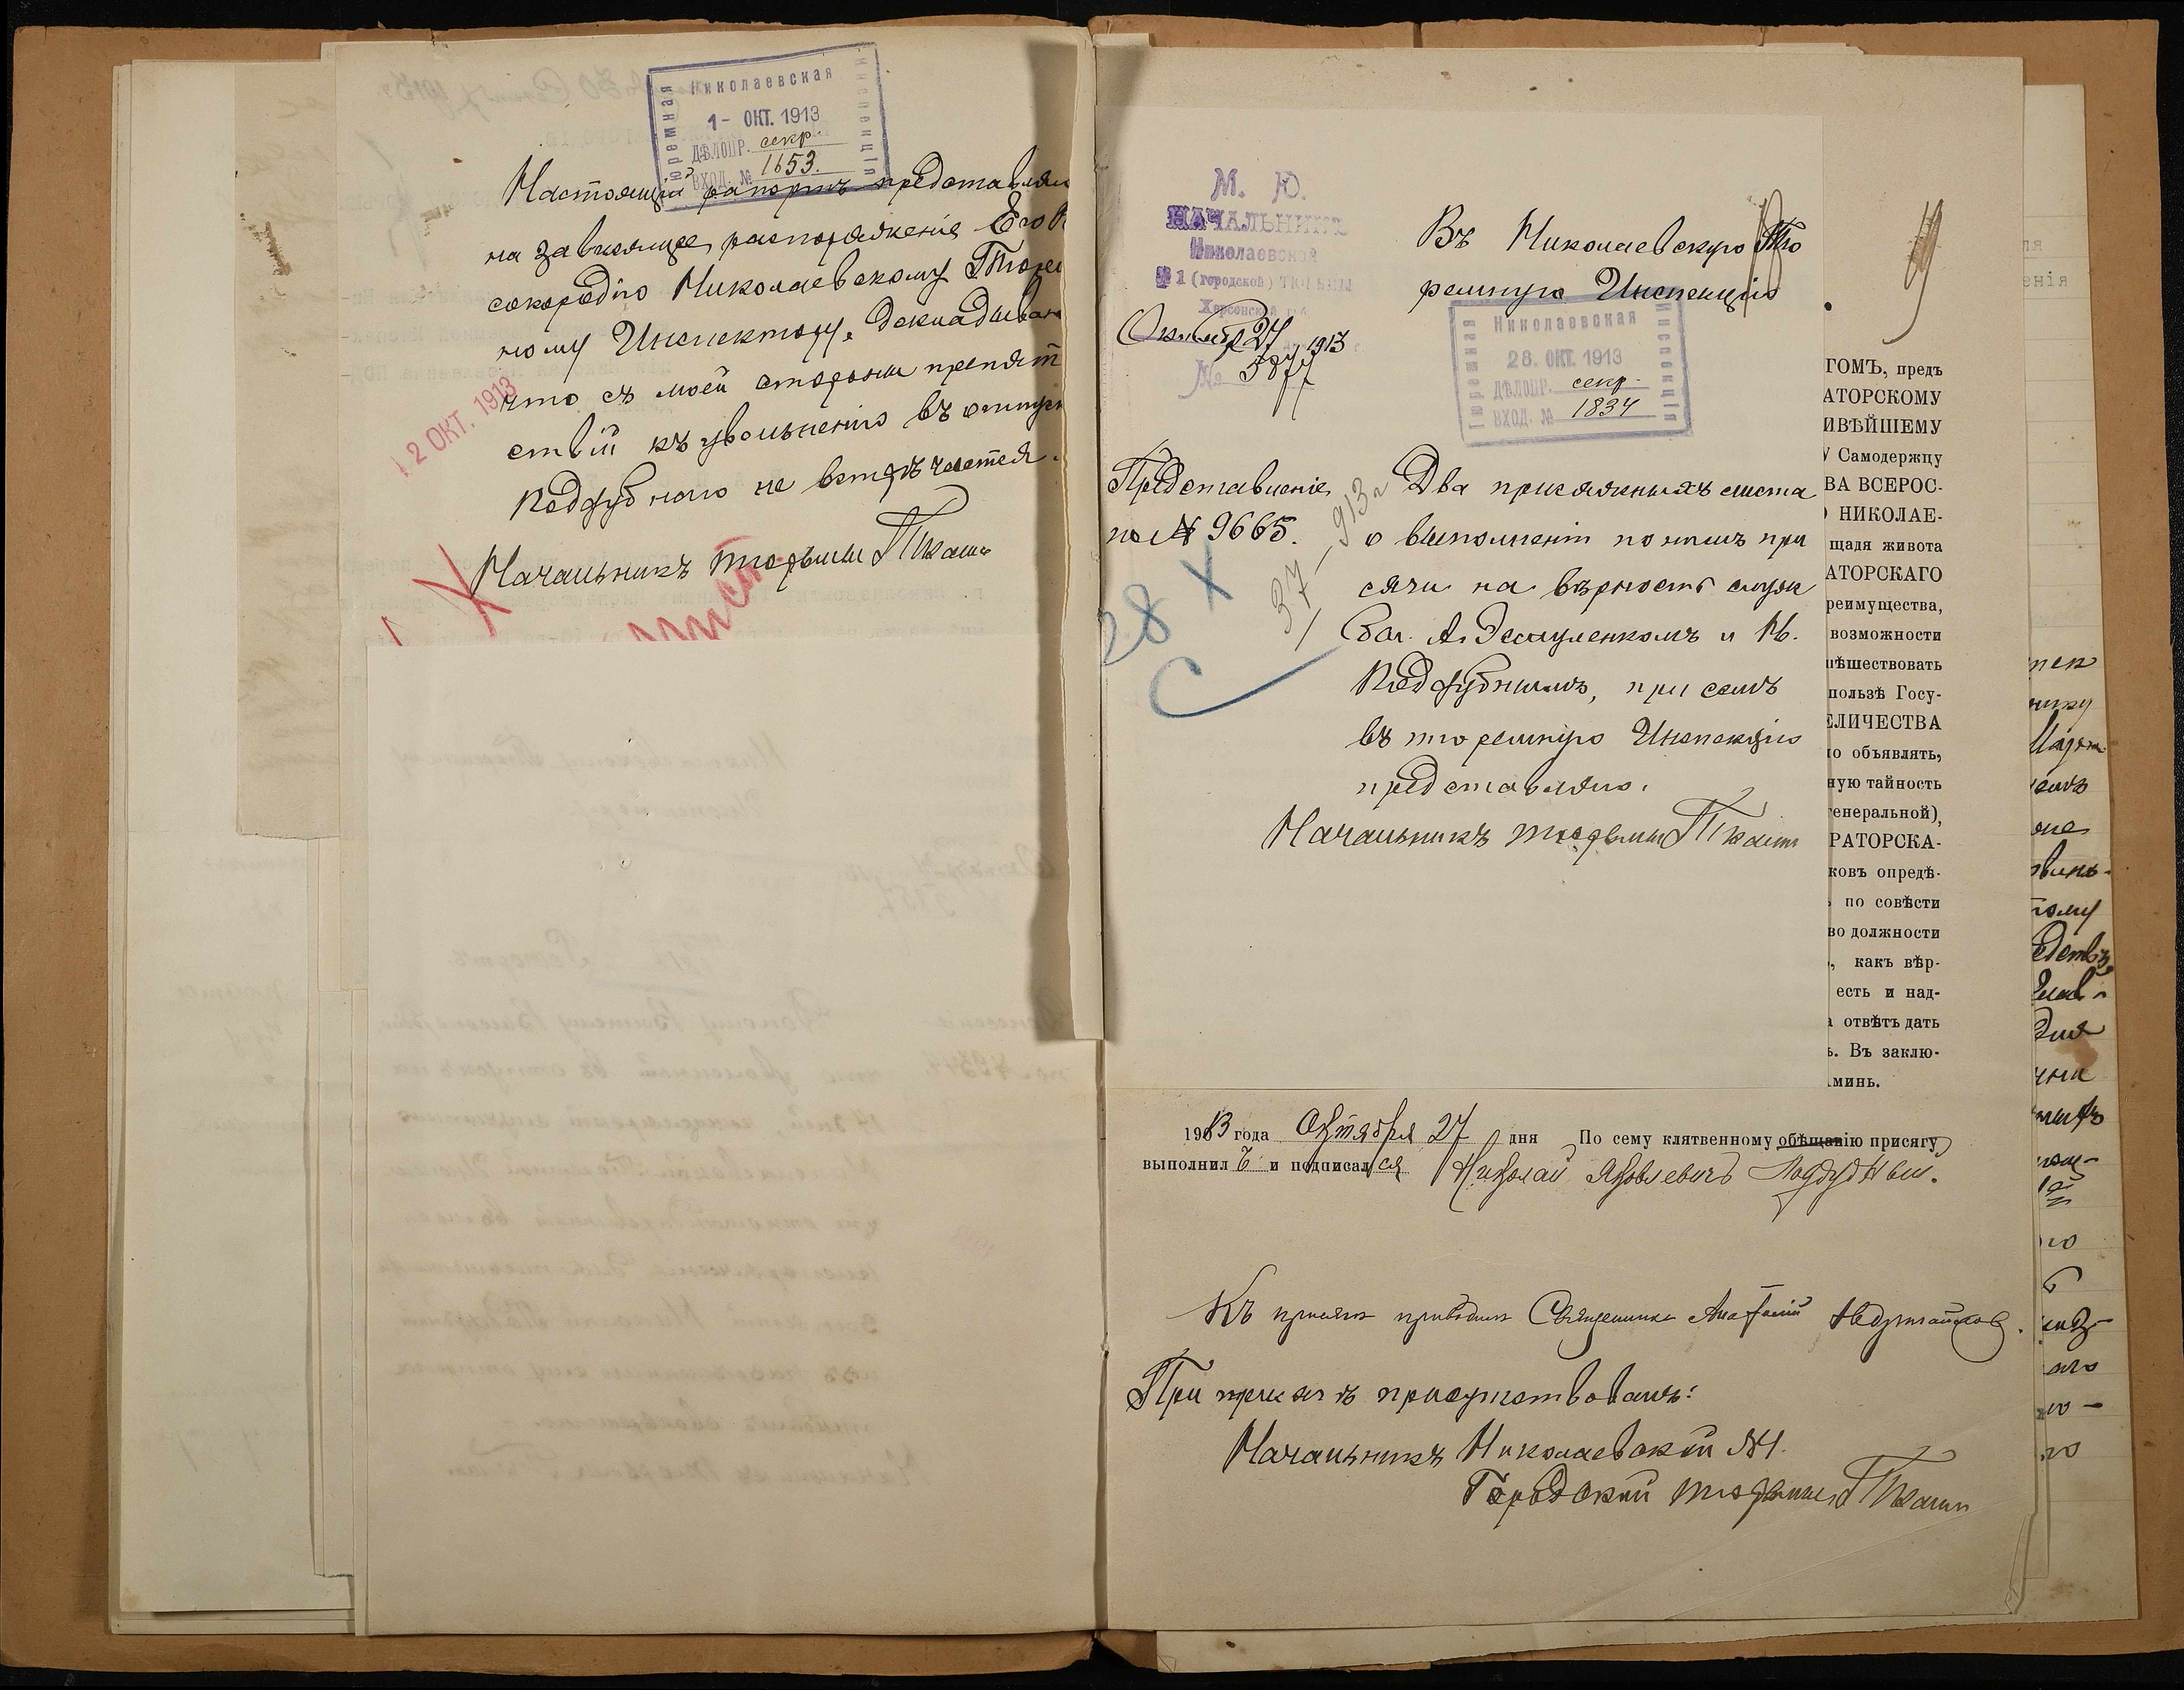 Николаевская
Тюремная
Инспекція
1 - ОКТ. 1913
ДѢЛОПР. секр.
ВХОД. № 1653.
Настоящій рапортъ представляю
на зависящее распоряженіе Его
сокородію Николаевскому Тюрем
ному Инспектору, докладывая
что съ моей стороны препят
ствій къ увольненію въ отпускъ
Поддубнаго не встрѣчается.
2 ОКТ. 1913
Начальникъ тюрьмы
М. Ю.
НАЧАЛЬНИКЪ
Николаевской
№ 1 (городской) ТЮРЬМЫ
Херсонской
Октября 27 1913
№ 3877
Въ Николаевскую Тю
ремную Инспекцію
Николаевская
Тюремная
Инспекція
28. ОКТ. 1913
ДѢЛОПР. секр.
ВХОД. № 1834
Представленіе
на № 9665.
913 г
37
28 X
Два присяжныхъ листа
о выполненіи по нимъ при
сяги на вѣрность служ
бы А. Демуленкомъ и Н.
Поддубнымъ, при семъ
въ тюремную Инспекцію
представляю.
Начальникъ тюрьмы
ГОМЪ, предъ
АТОРСКОМУ
ИВѢЙШЕМУ
Самодержцу
ВА ВСЕРОС-
НИКОЛАЕ-
щадя живота
АТОРСКАГО
реимущества,
возможности
пѣшествовать
пользѣ Госу-
ЕЛИЧЕСТВА
но объявлять,
ную тайность
генеральной),
РАТОРСКА-
ковъ опредѣ-
по совѣсти
во должности
, какъ вѣр-
есть и над-
отвѣтъ дать
ь. Въ заклю-
минь.
1913 года Октября 27 дня По сему клятвенному обѣщанію присягу
выполнилъ и подписался Николай Яковлевичъ Поддубный.
Къ присягѣ приводилъ Священникъ Анатолій
При присягѣ присутствовалъ:
Начальникъ Николаевской №1.
Городской тюрьмы